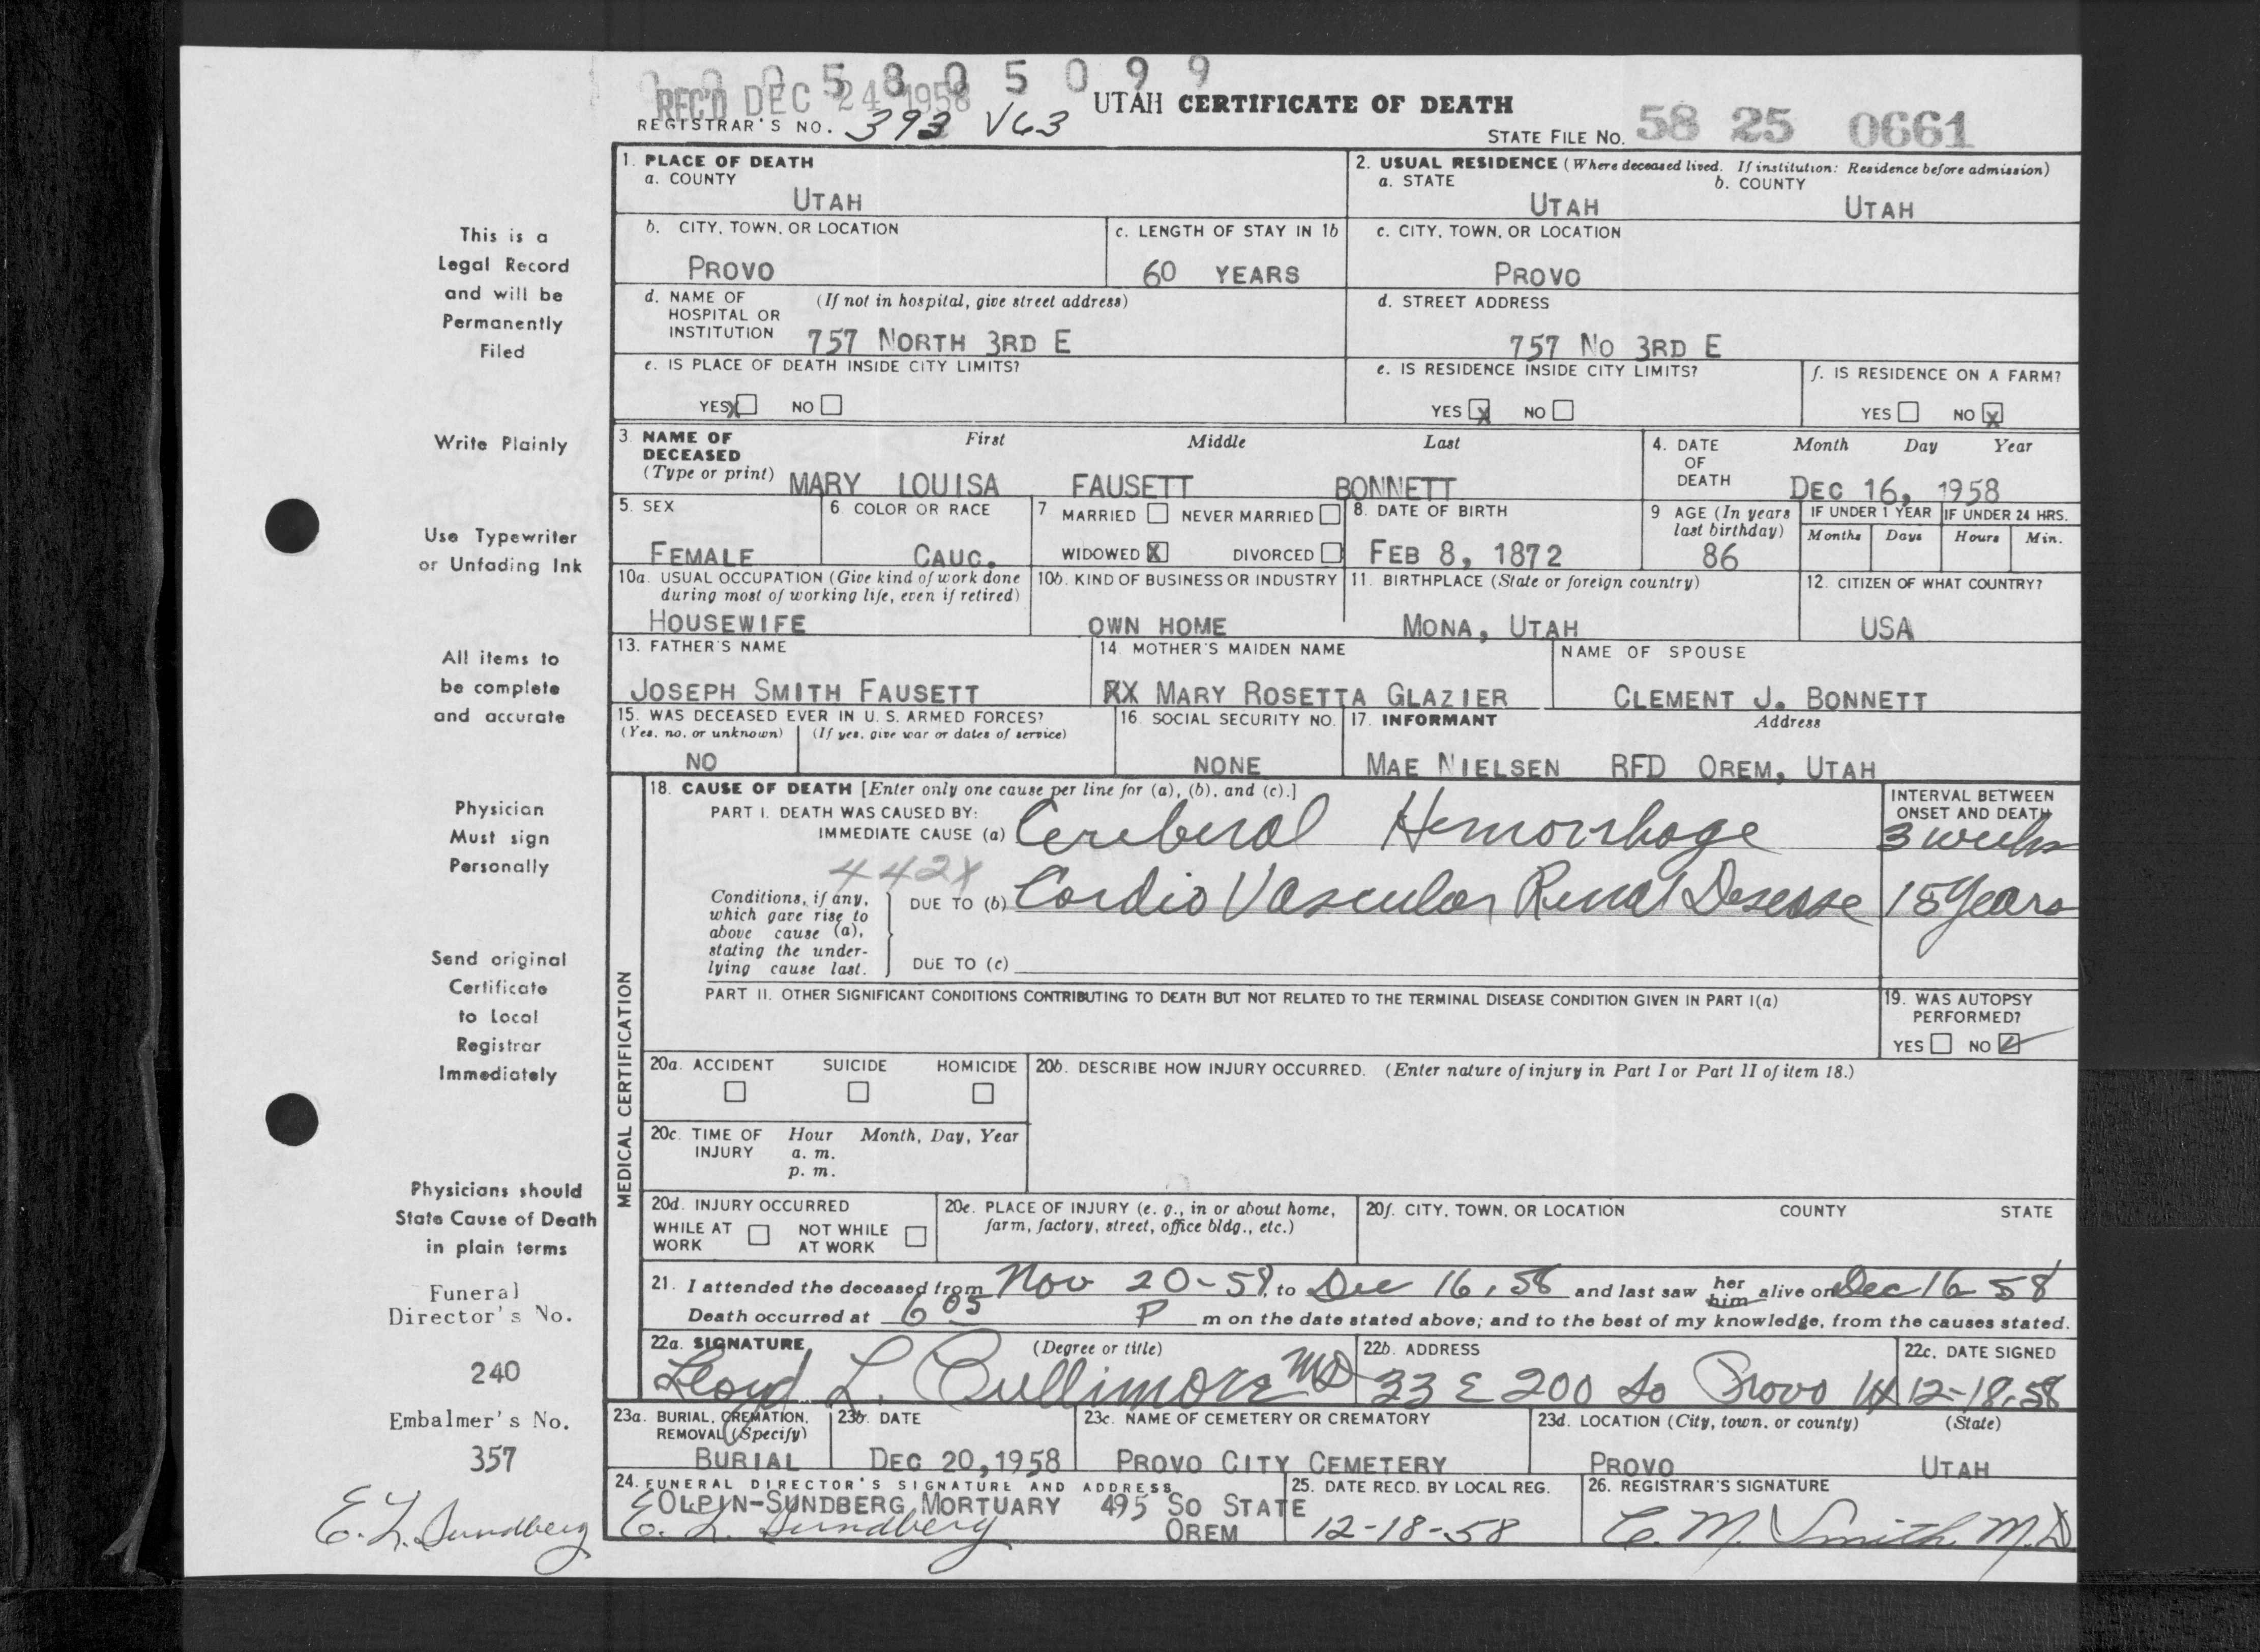 0 0 0 5 8 0 5 0 9 9
REC'D DEC 24 1958
UTAH CERTIFICATE OF DEATH
REGISTRAR'S NO. 393 V63
STATE FILE NO. 58 25 0661
This is a
Legal Record
and will be
Permanently
Filed
Write Plainly
Use Typewriter
or Unfading Ink
All items to
be complete
and accurate
Physician
Must sign
Personally
Send original
Certificate
to Local
Registrar
Immediately
Physicians should
State Cause of Death
in plain terms
Funeral
Director's No.
240
Embalmer's No.
357
E. L. Sundberg
1. PLACE OF DEATH
a. COUNTY
UTAH
2. USUAL RESIDENCE (Where deceased lived. If institution: Residence before admission)
a. STATE b. COUNTY
UTAH UTAH
b. CITY, TOWN, OR LOCATION
PROVO
c. LENGTH OF STAY IN 1b
60 YEARS
c. CITY, TOWN, OR LOCATION
PROVO
d. NAME OF (If not in hospital, give street address)
HOSPITAL OR
INSTITUTION 757 NORTH 3RD E
d. STREET ADDRESS
757 NO 3RD E
e. IS PLACE OF DEATH INSIDE CITY LIMITS?
YES X NO
e. IS RESIDENCE INSIDE CITY LIMITS?
YES X NO
f. IS RESIDENCE ON A FARM?
YES NO X
3. NAME OF First Middle Last
DECEASED
(Type or print) MARY LOUISA FAUSETT BONNETT
4. DATE Month Day Year
OF
DEATH DEC 16, 1958
5. SEX
FEMALE
6. COLOR OR RACE
CAUC.
7. MARRIED NEVER MARRIED
WIDOWED X DIVORCED
8. DATE OF BIRTH
FEB 8, 1872
9 AGE (In years
last birthday)
86
IF UNDER 1 YEAR IF UNDER 24 HRS.
Months Days Hours Min.
10a. USUAL OCCUPATION (Give kind of work done
during most of working life, even if retired)
HOUSEWIFE
10b. KIND OF BUSINESS OR INDUSTRY
OWN HOME
11. BIRTHPLACE (State or foreign country)
MONA, UTAH
12. CITIZEN OF WHAT COUNTRY?
USA
13. FATHER'S NAME
JOSEPH SMITH FAUSETT
14. MOTHER'S MAIDEN NAME
XX MARY ROSETTA GLAZIER
NAME OF SPOUSE
CLEMENT J. BONNETT
15. WAS DECEASED EVER IN U. S. ARMED FORCES?
(Yes, no, or unknown) (If yes, give war or dates of service)
NO
16. SOCIAL SECURITY NO.
NONE
17. INFORMANT Address
MAE NIELSEN RFD OREM, UTAH
MEDICAL CERTIFICATION
18. CAUSE OF DEATH [Enter only one cause per line for (a), (b), and (c).]
PART I. DEATH WAS CAUSED BY:
IMMEDIATE CAUSE (a) Cerebral Hemorrhage
INTERVAL BETWEEN
ONSET AND DEATH
3 weeks
442X
Conditions, if any,
which gave rise to
above cause (a),
stating the under-
lying cause last.
DUE TO (b) Cardio Vascular Renal Disease 15 Years
DUE TO (c)
PART II. OTHER SIGNIFICANT CONDITIONS CONTRIBUTING TO DEATH BUT NOT RELATED TO THE TERMINAL DISEASE CONDITION GIVEN IN PART I(a)
19. WAS AUTOPSY
PERFORMED?
YES NO
20a. ACCIDENT SUICIDE HOMICIDE
20b. DESCRIBE HOW INJURY OCCURRED. (Enter nature of injury in Part I or Part II of item 18.)
20c. TIME OF Hour Month, Day, Year
INJURY a. m.
p. m.
20d. INJURY OCCURRED
WHILE AT NOT WHILE
WORK AT WORK
20e. PLACE OF INJURY (e. g., in or about home,
farm, factory, street, office bldg., etc.)
20f. CITY, TOWN, OR LOCATION COUNTY STATE
21. I attended the deceased from Nov 20-58, to Dec 16, 58 and last saw her him alive on Dec 16 58
Death occurred at 6 05 P m on the date stated above; and to the best of my knowledge, from the causes stated.
22a. SIGNATURE (Degree or title)
Lloyd L. Cullimore MD
22b. ADDRESS
33 E 200 So Provo Ut
22c. DATE SIGNED
12-18-58
23a. BURIAL, CREMATION,
REMOVAL (Specify)
BURIAL
23b. DATE
DEC 20, 1958
23c. NAME OF CEMETERY OR CREMATORY
PROVO CITY CEMETERY
23d. LOCATION (City, town, or county) (State)
PROVO UTAH
24. FUNERAL DIRECTOR'S SIGNATURE AND ADDRESS
OLPIN-SUNDBERG MORTUARY 495 SO STATE
E. L. Sundberg OREM
25. DATE RECD. BY LOCAL REG.
12-18-58
26. REGISTRAR'S SIGNATURE
C. M. Smith M.D